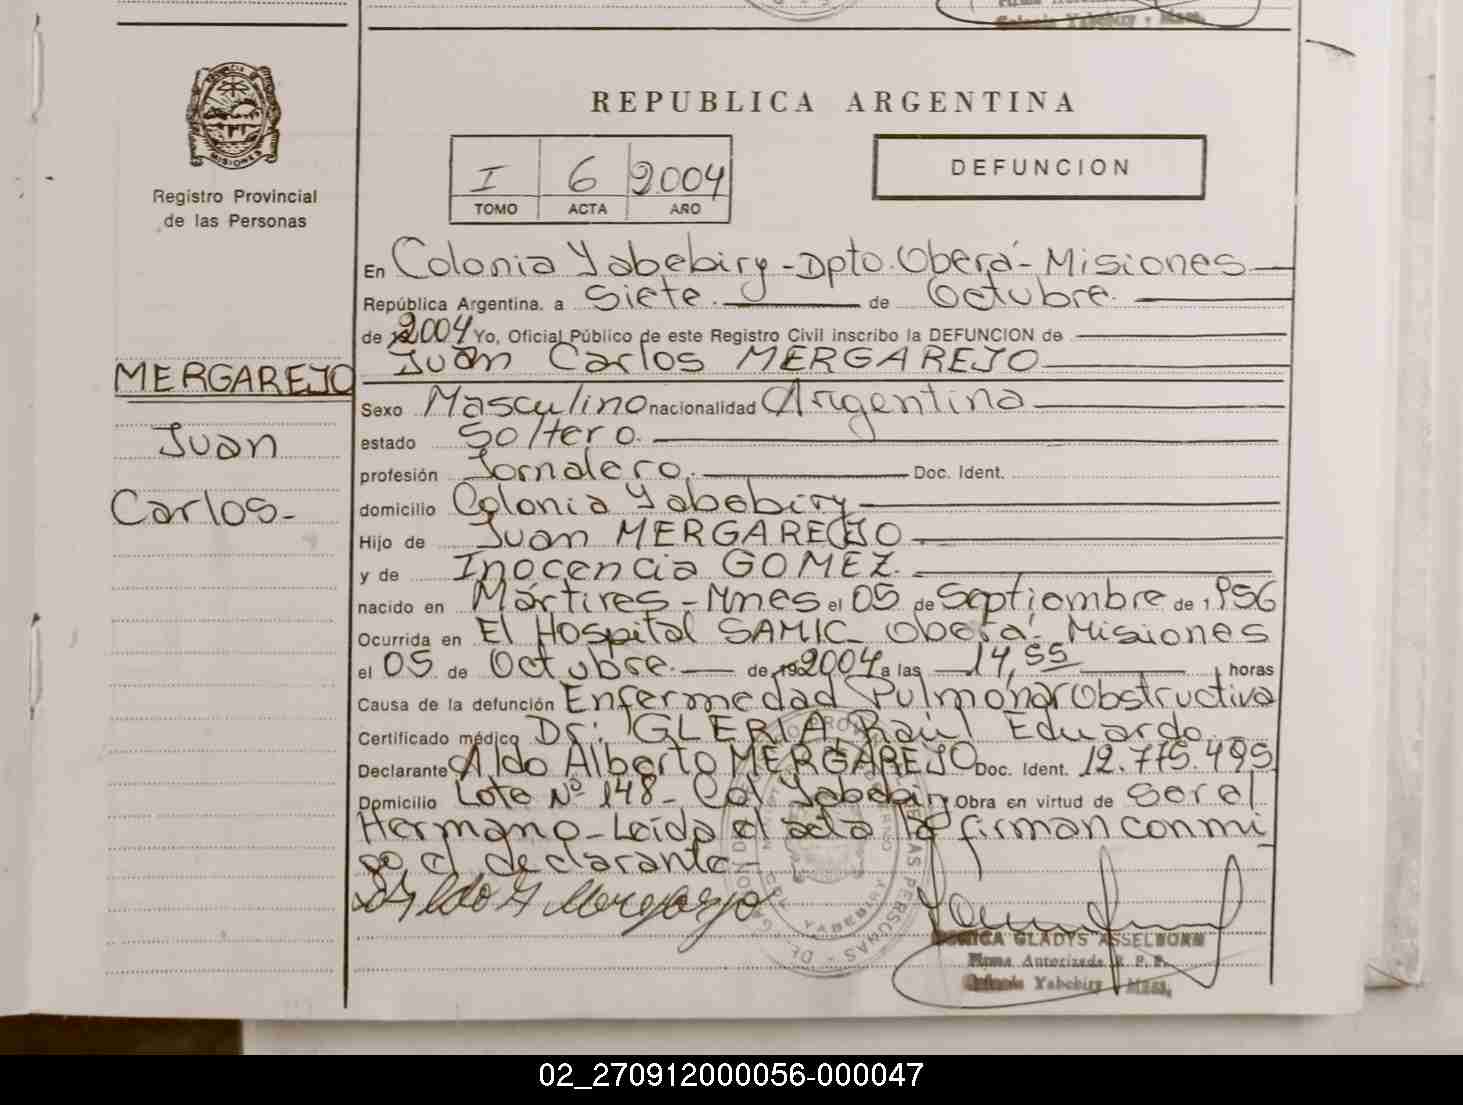 Colonia Yabebiry - Mnes.
REPUBLICA ARGENTINA
MISIONES
Registro Provincial
de las Personas
I 6 2004
TOMO ACTA AÑO
DEFUNCION
En Colonia Yabebiry - Dpto. Oberá - Misiones
República Argentina, a Siete. de Octubre.
de 2004 Yo, Oficial Público de este Registro Civil inscribo la DEFUNCION de
Juan Carlos MERGAREJO
MERGAREJO
Juan
Carlos-
Sexo Masculino nacionalidad Argentina
estado Soltero.
profesión Jornalero. Doc. Ident.
domicilio Colonia Yabebiry
Hijo de Juan MERGAREJO
y de Inocencia GOMEZ.
nacido en Mártires - Mnes el 05 de Septiembre de 1956
Ocurrida en El Hospital SAMIC - Oberá - Misiones
el 05 de Octubre. de 2004 a las 14,55 horas
Causa de la defunción Enfermedad Pulmonar Obstructiva
Certificado médico Dr: GLERIA, Raúl Eduardo.
Declarante Aldo Alberto MERGAREJO Doc. Ident. 12.775.495
Domicilio Lote Nº 148 - Col Yabebiry Obra en virtud de ser el
Hermano - Leída el acta la firman conmi
go el declarante-
Aldo A Mergarejo
MONICA GLADYS ASSELBORN
Firma Autorizada R. P. P.
Colonia Yabebiry - Mnes.
02_270912000056-000047